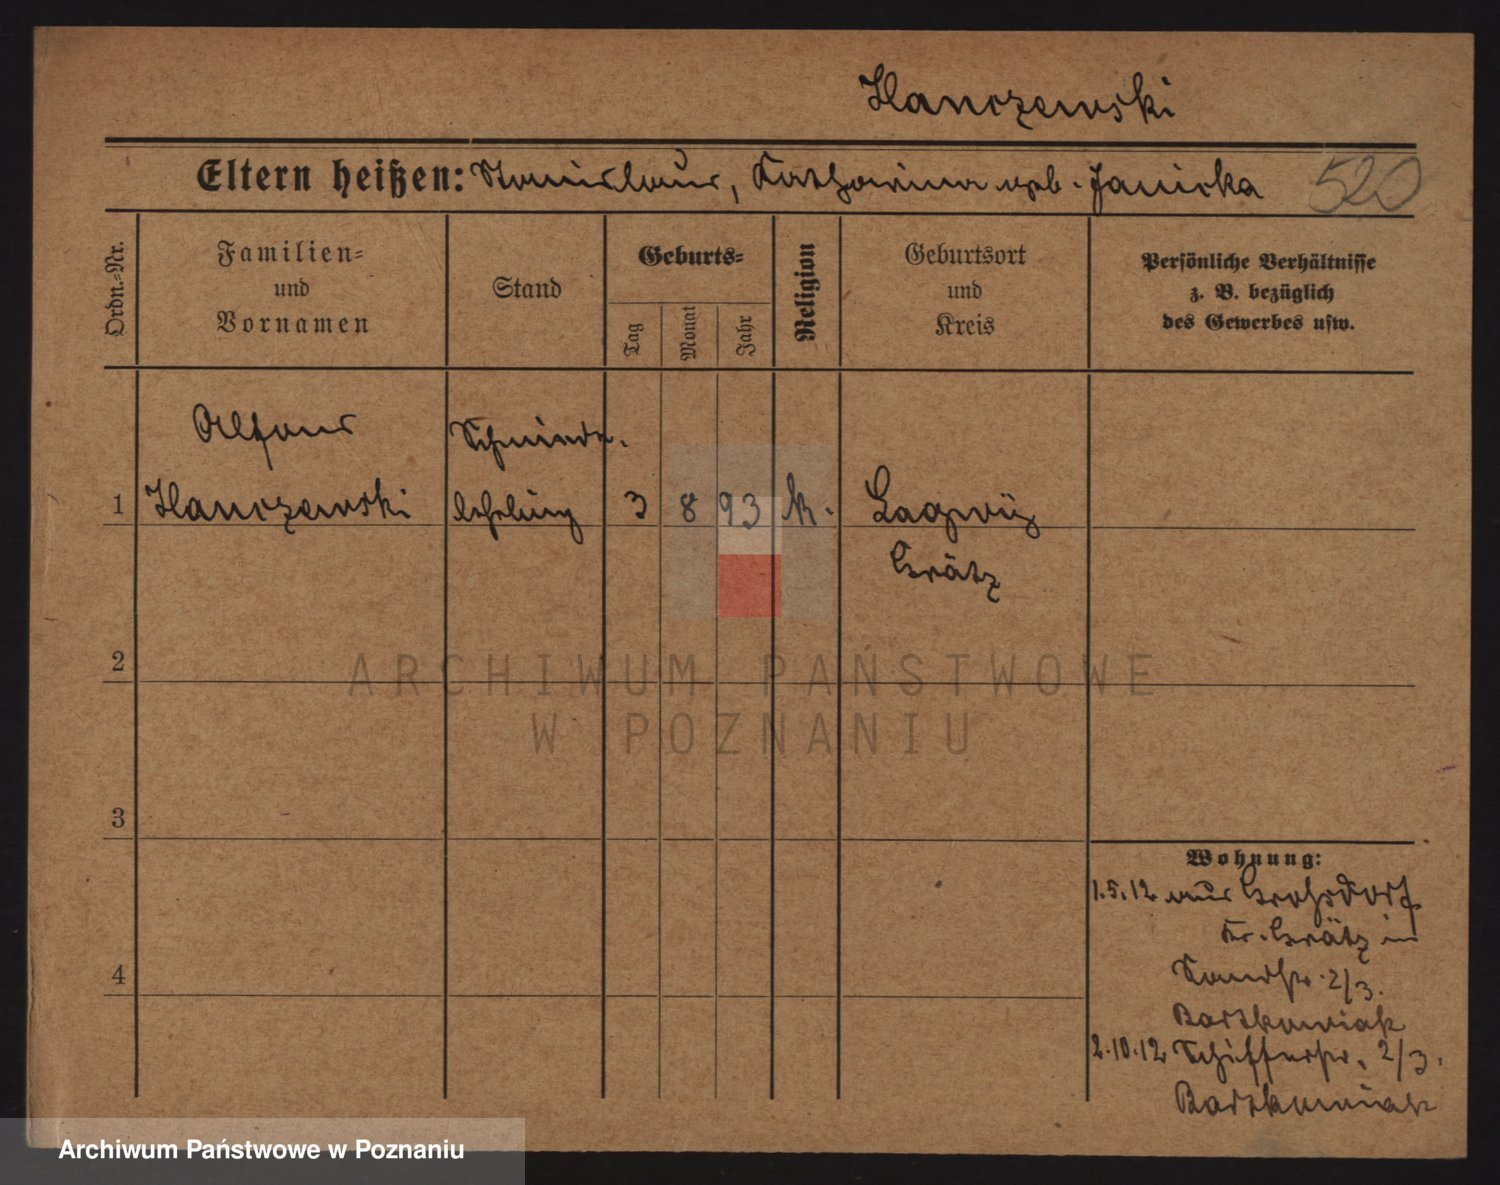 Hanczewski
Eltern heißen: Stanislaus, Katharina geb. Janicka 520
Ordn.-Nr.
Familien-
und
Vornamen
Stand
Geburts-
Tag
Monat
Jahr
Religion
Geburtsort
und
Kreis
Persönliche Verhältnisse
z. B. bezüglich
des Gewerbes usw.
Alfons Schmiede.
1 Hanczewski lehrling 3 8 93 k. Lagwÿ
Grätz
2
ARCHIWUM PAŃSTWOWE
W POZNANIU
3
Wohnung:
1.5.12 aus Grofsdorf
Kr. Grätz in
4
Sandstr. 2/3.
Bartkowiak
2.10.12 Schifferstr. 2/3.
Bartkowiak
Archiwum Państwowe w Poznaniu